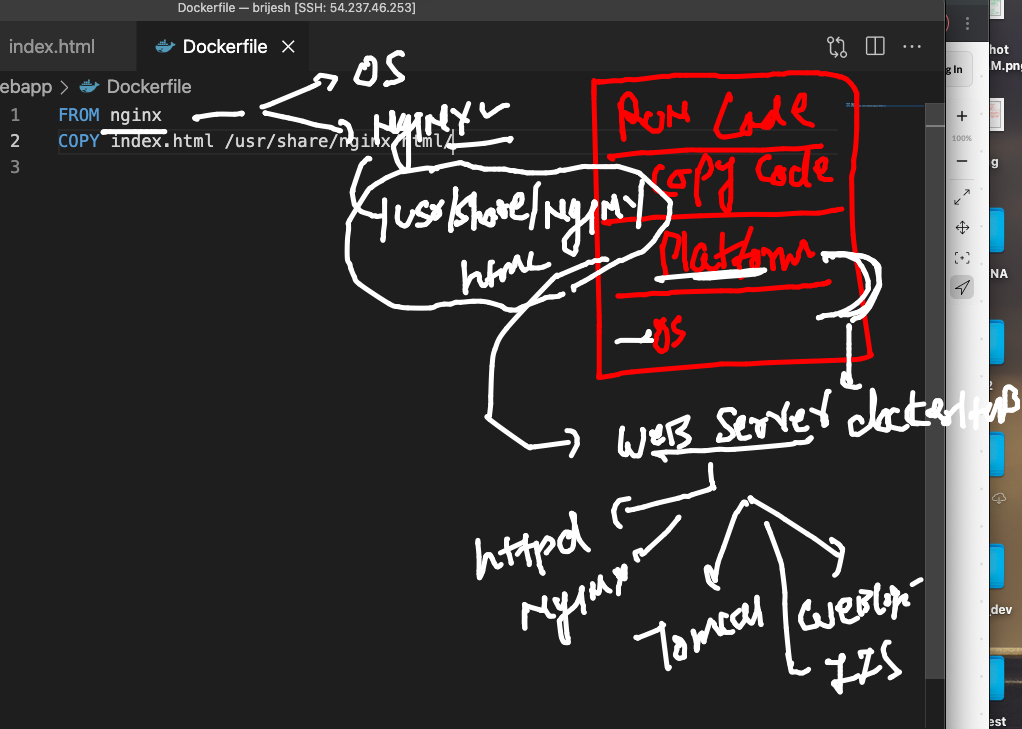 Dockerfile — brijesh [SSH: 54.237.46.253]
index.html
Dockerfile
ebapp > Dockerfile
1 FROM nginx
2 COPY index.html /usr/share/nginx/html/
3
OS
NgiNX
/usr/share/NgiNX/
html
RUN Code
Copy Code
Platform
OS
WEB Server
dockerHUB
httpd
NgiNX
Tomcat
IIS
hot
M.png
g In
100%
g
NA
2
dev
est